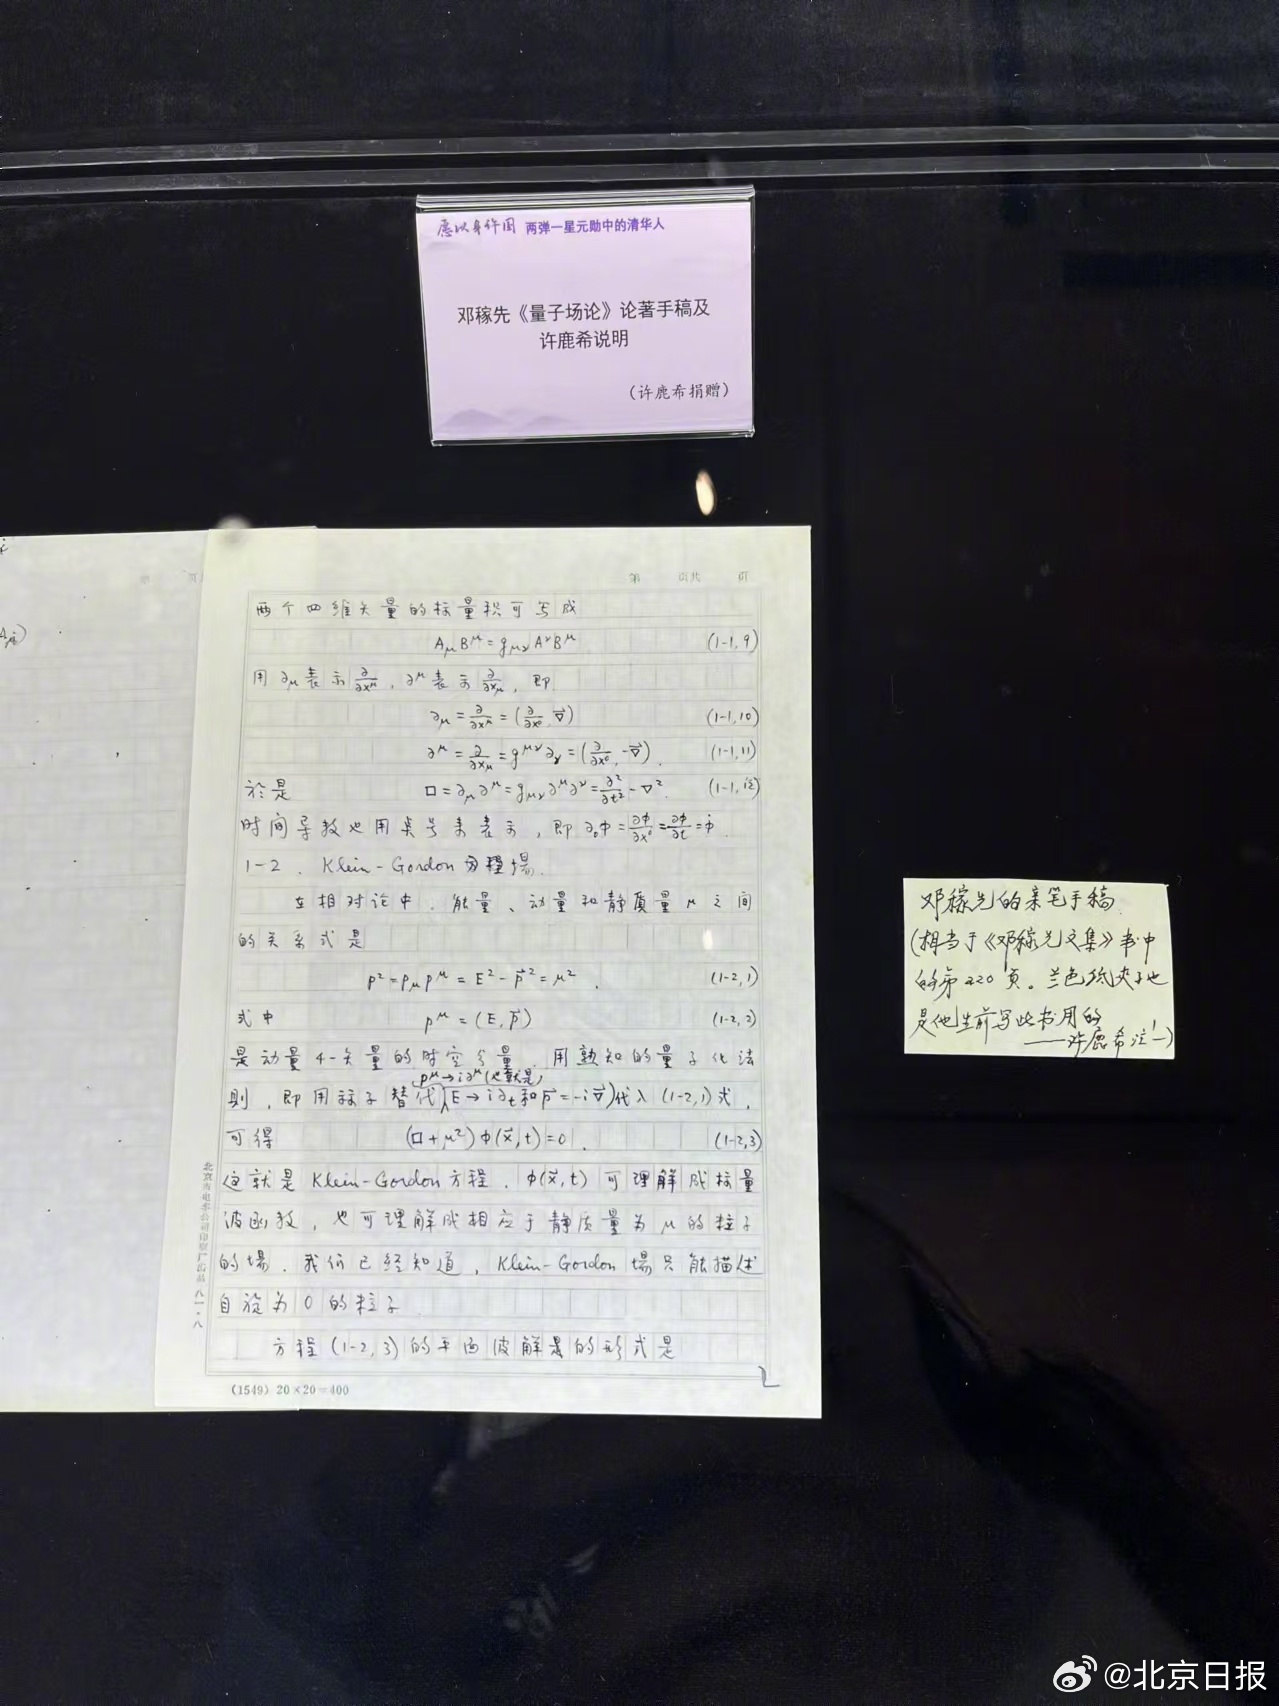 愿以身许国 两弹一星元勋中的清华人
邓稼先《量子场论》论著手稿及
许鹿希说明
（许鹿希捐赠）
第 页共 页
两个四维矢量的标量积可写成
AμB^μ = gμν A^νB^μ (1-1,9)
用 ∂μ 表示 ∂/∂x^μ, ∂^μ 表示 ∂/∂xμ, 即
∂μ = ∂/∂x^μ = (∂/∂x⁰, ∇⃗) (1-1,10)
∂^μ = ∂/∂xμ = g^μν ∂ν = (∂/∂x⁰, -∇⃗). (1-1,11)
於是 □ = ∂μ∂^μ = gμν∂^μ∂^ν = ∂²/∂t² - ∇². (1-1,12)
时间导数也用点号来表示, 即 ∂₀φ = ∂φ/∂x⁰ = ∂φ/∂t = φ̇.
1-2. Klein-Gordon 方程場.
在相对论中, 能量、动量和静质量 μ 之间
的关系式是
p² = pμp^μ = E² - p⃗² = μ². (1-2,1)
式中 p^μ = (E, p⃗) (1-2,2)
是动量4-矢量的时空分量. 用熟知的量子化法
p^μ→i∂^μ (也就是,
则, 即用算子替代 E→i∂t 和 p⃗ = -i∇⃗) 代入 (1-2,1) 式,
可得 (□+μ²)φ(x⃗,t)=0. (1-2,3)
这就是 Klein-Gordon 方程. φ(x⃗,t) 可理解成标量
波函数, 也可理解成相应于静质量为 μ 的粒子
的場. 我们已经知道, Klein-Gordon 場只能描述
自旋为 0 的粒子.
方程 (1-2,3) 的平面波解的形式是
2
北京市电车公司印刷厂出品 八一·八
(1549) 20×20=400
邓稼先的亲笔手稿.
(相当于《邓稼先文集》书中
的第220页。兰色纸夹子也
是他生前写此书用的
——许鹿希注!)
@北京日报